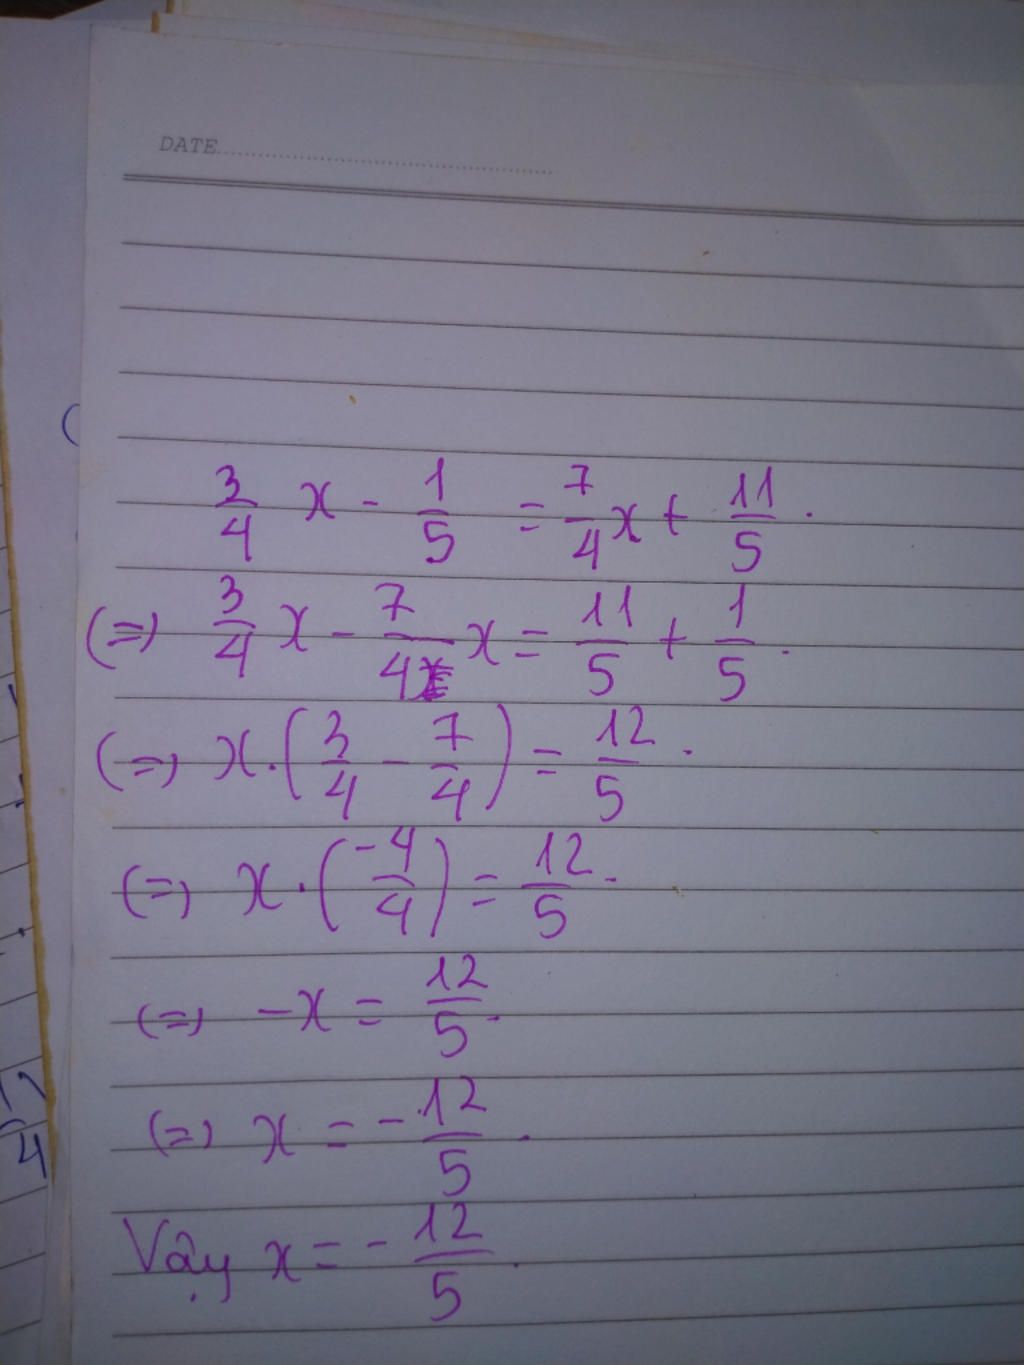 DATE
3/4 x - 1/5 = 7/4 x + 11/5.
(=) 3/4 x - 7/4 x = 11/5 + 1/5.
(=) x.(3/4 - 7/4) = 12/5.
(=) x.(-4/4) = 12/5.
(=) -x = 12/5.
(=) x = -12/5.
Vậy x = -12/5.
4